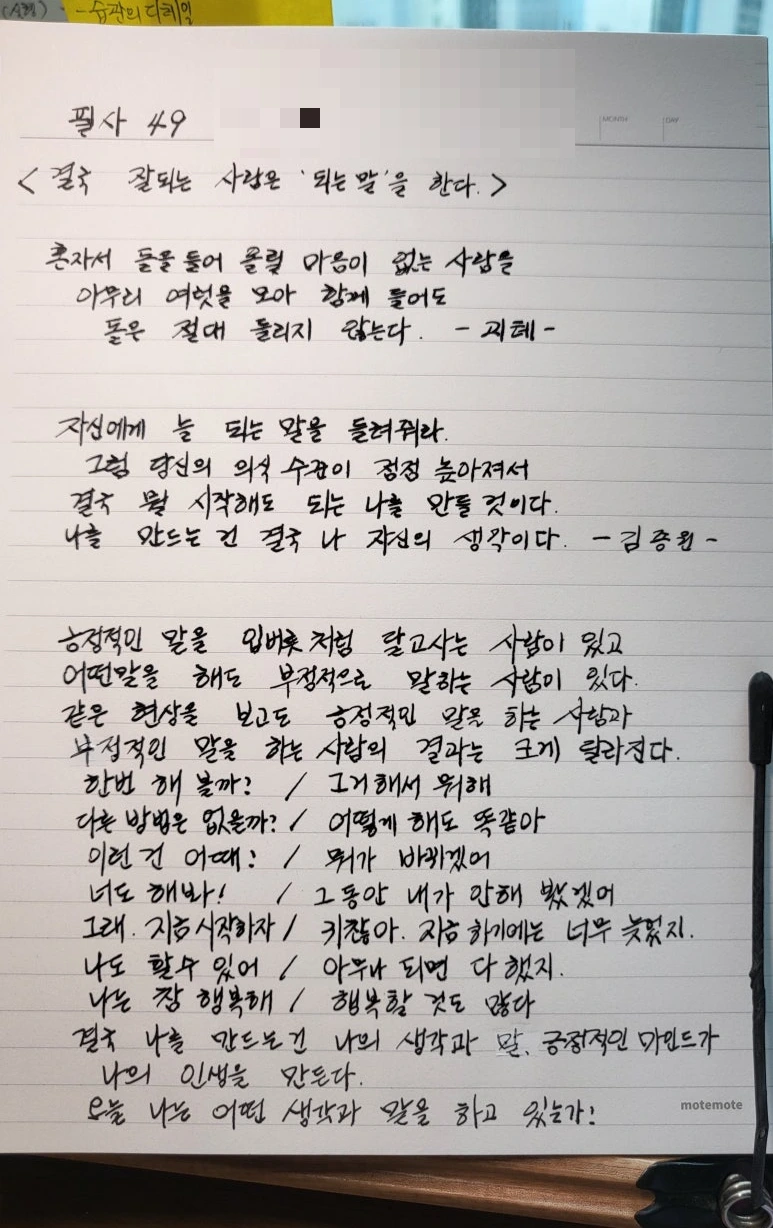 (실행) - 습관의 디테일
필사 49
MONTH DAY
< 결국 잘되는 사람은 '되는 말'을 한다. >
혼자서 돌을 들어 올릴 마음이 없는 사람을
아무리 여럿을 모아 함께 들어도
돌은 절대 들리지 않는다. - 괴테 -
자신에게 늘 되는 말을 들려줘라.
그럼 당신의 의식 수준이 점점 높아져서
결국 뭘 시작해도 되는 나를 만들 것이다.
나를 만드는 건 결국 나 자신의 생각이다. - 김종원 -
긍정적인 말을 입버릇처럼 달고사는 사람이 있고
어떤말을 해도 부정적으로 말하는 사람이 있다.
같은 현상을 보고도 긍정적인 말을 하는 사람과
부정적인 말을 하는 사람의 결과는 크게 달라진다.
한번 해 볼까? / 그거 해서 뭐해
다른 방법은 없을까? / 어떻게 해도 똑같아
이런 건 어때? / 뭐가 바뀌겠어
너도 해봐! / 그동안 내가 안해 봤겠어
그래. 지금 시작하자 / 귀찮아. 지금 하기에는 너무 늦었지.
나도 할수 있어 / 아무나 되면 다 했지.
나는 참 행복해 / 행복할 것도 많다
결국 나를 만드는건 나의 생각과 말. 긍정적인 마인드가
나의 인생을 만든다.
오늘 나는 어떤 생각과 말을 하고 있는가!
motemote